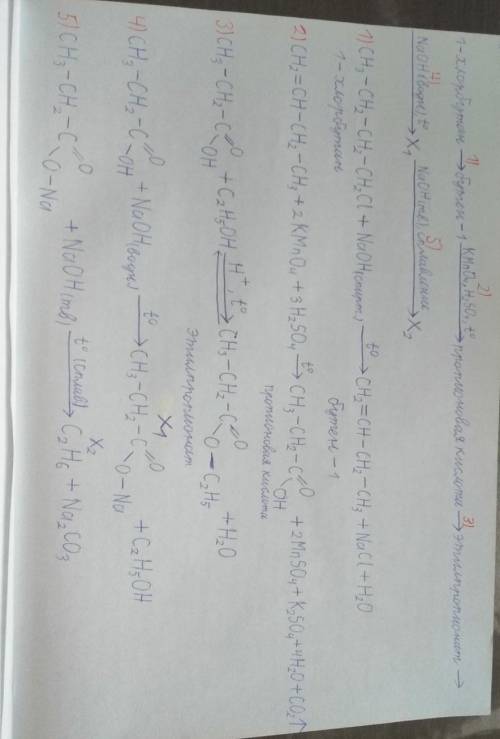 1-хлорбутан →¹⁾ бутен-1 →²⁾ KMnO₄, H₂SO₄, t° пропионовая кислота →³⁾ этилпропионат →
4) NaOH(водн), t° → X₁ 5) NaOH(тв) сплавление → X₂
1) CH₃–CH₂–CH₂–CH₂Cl + NaOH(спирт) →t° CH₂=CH–CH₂–CH₃ + NaCl + H₂O
1-хлорбутан бутен-1
2) CH₂=CH–CH₂–CH₃ + 2KMnO₄ + 3H₂SO₄ →t° CH₃–CH₂–C(=O)–OH + 2MnSO₄ + K₂SO₄ + 4H₂O + CO₂↑
пропионовая кислота
3) CH₃–CH₂–C(=O)–OH + C₂H₅OH ⇄ H⁺, t° CH₃–CH₂–C(=O)–O–C₂H₅ + H₂O
этилпропионат
4) CH₃–CH₂–C(=O)–OH + NaOH(водн) →t° CH₃–CH₂–C(=O)–O–Na + C₂H₅OH
X1
5) CH₃–CH₂–C(=O)–O–Na + NaOH(тв) →t° (сплав) C₂H₆ + Na₂CO₃
X₂